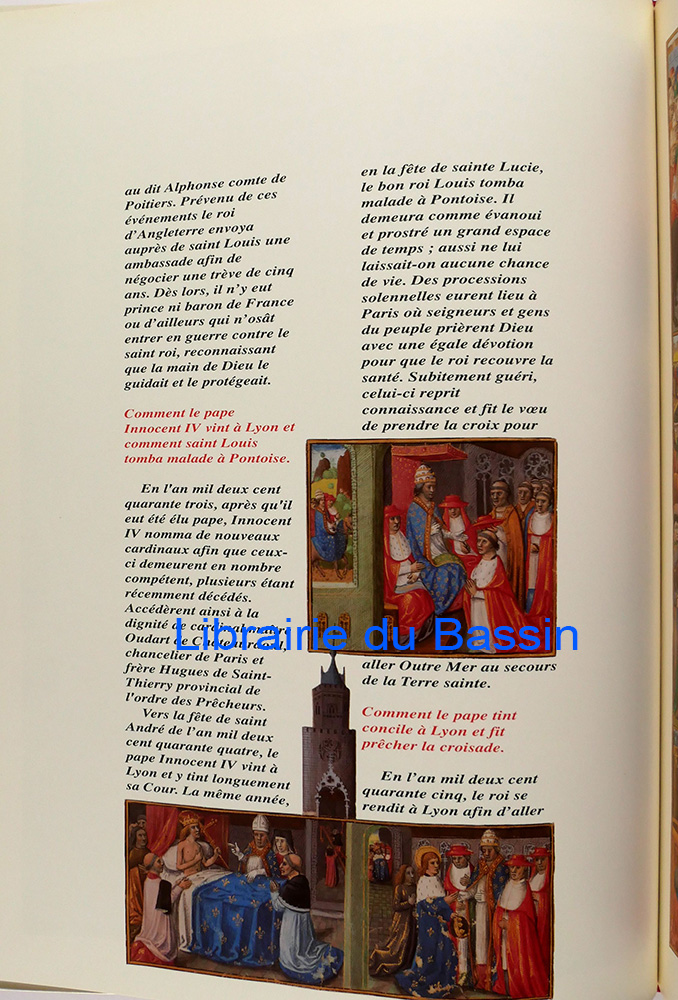 au dit Alphonse comte de
Poitiers. Prévenu de ces
événements le roi
d'Angleterre envoya
auprès de saint Louis une
ambassade afin de
négocier une trève de cinq
ans. Dès lors, il n'y eut
prince ni baron de France
ou d'ailleurs qui n'osât
entrer en guerre contre le
saint roi, reconnaissant
que la main de Dieu le
guidait et le protégeait.
Comment le pape
Innocent IV vint à Lyon et
comment saint Louis
tomba malade à Pontoise.
En l'an mil deux cent
quarante trois, après qu'il
eut été élu pape, Innocent
IV nomma de nouveaux
cardinaux afin que ceux-
ci demeurent en nombre
compétent, plusieurs étant
récemment décédés.
Accédèrent ainsi à la
dignité de cardinal maître
Oudart de
chancelier de Paris et
frère Hugues de Saint-
Thierry provincial de
l'ordre des Prêcheurs.
Vers la fête de saint
André de l'an mil deux
cent quarante quatre, le
pape Innocent IV vint à
Lyon et y tint longuement
sa Cour. La même année,
en la fête de sainte Lucie,
le bon roi Louis tomba
malade à Pontoise. Il
demeura comme évanoui
et prostré un grand espace
de temps ; aussi ne lui
laissait-on aucune chance
de vie. Des processions
solennelles eurent lieu à
Paris où seigneurs et gens
du peuple prièrent Dieu
avec une égale dévotion
pour que le roi recouvre la
santé. Subitement guéri,
celui-ci reprit
connaissance et fit le vœu
de prendre la croix pour
aller Outre Mer au secours
de la Terre sainte.
Comment le pape tint
concile à Lyon et fit
prêcher la croisade.
En l'an mil deux cent
quarante cinq, le roi se
rendit à Lyon afin d'aller
Librairie du Bassin